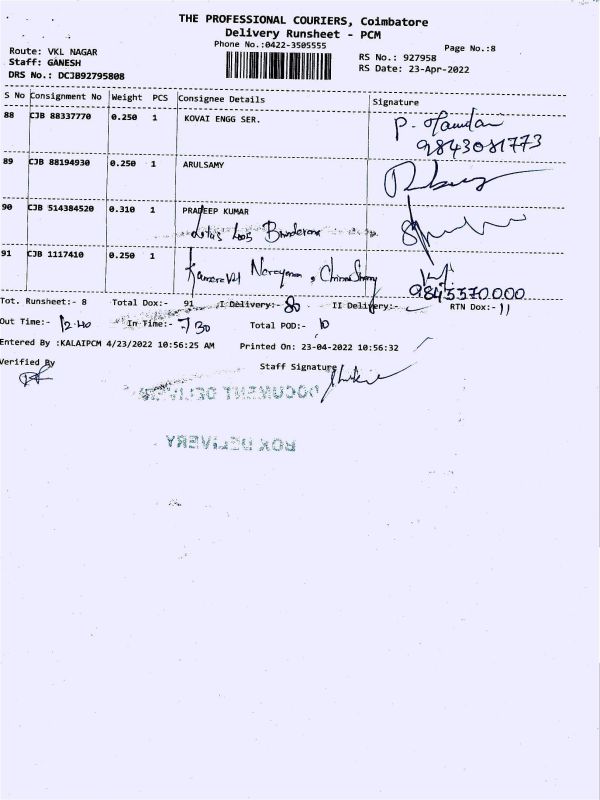 THE PROFESSIONAL COURIERS, Coimbatore
Delivery Runsheet - PCM
Phone No.:0422-3505555
Page No.:8
Route: VKL NAGAR
Staff: GANESH
DRS No.: DCJB92795808
RS No.: 927958
RS Date: 23-Apr-2022
S No Consignment No Weight PCS Consignee Details Signature
88 CJB 88337770 0.250 1 KOVAI ENGG SER.
9843081773
89 CJB 88194930 0.250 1 ARULSAMY
90 CJB 514384520 0.310 1 PRADEEP KUMAR
91 CJB 1117410 0.250 1
9845570000
Tot. Runsheet:- 8 Total Dox:- 91 I Delivery:- 80 II Delivery:- RTN Dox:- 11
Out Time:- 12.40 In Time:- 7 30 Total POD:- 10
Entered By :KALAIPCM 4/23/2022 10:56:25 AM Printed On: 23-04-2022 10:56:32
Verified By
Staff Signature
DOCUMENT DELIVERY
BOX DELIVERY